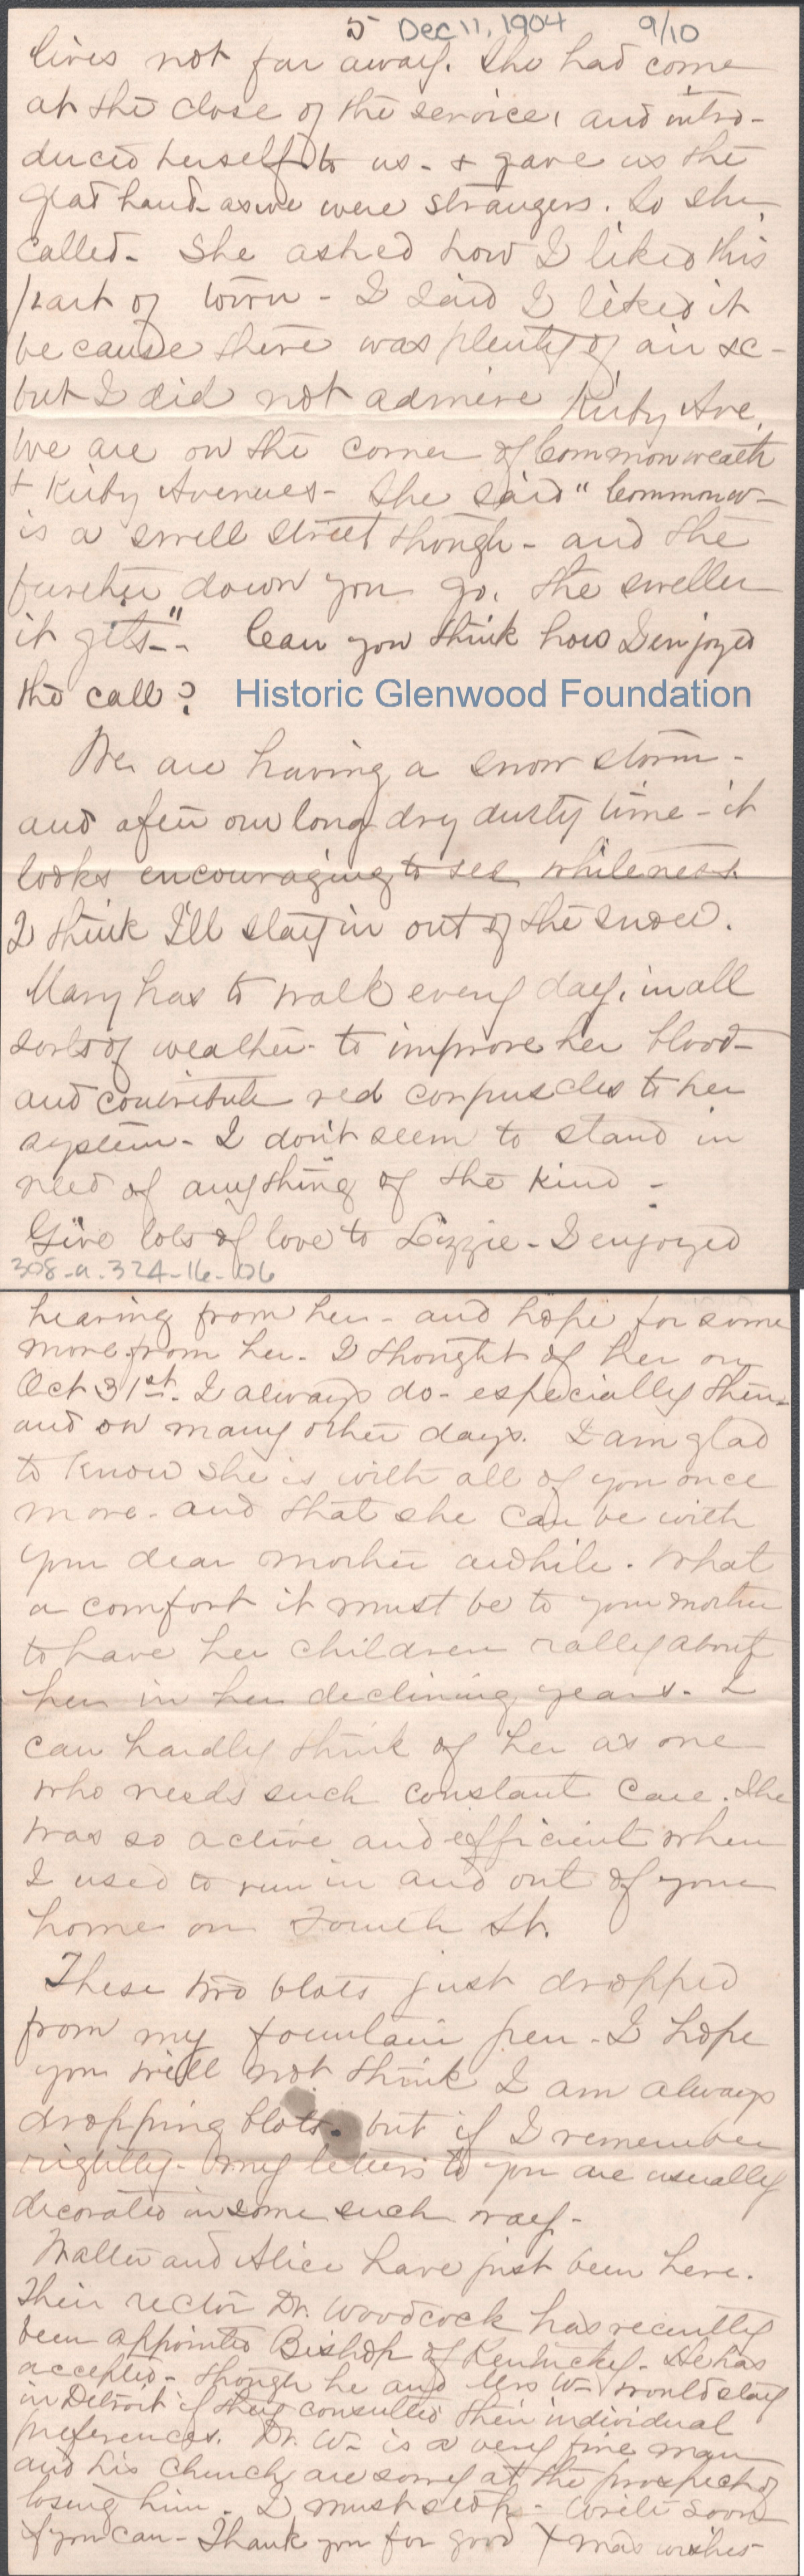 5 Dec 11, 1904 9/10
lives not far away. She had come
at the close of the service, and intro-
duced herself to us - & gave us the
glad hand - as we were strangers. So she
called - She asked how I liked this
part of town - I said I liked it
because there was plenty of air &c -
but I did not admire Kirby Ave.
We are on the corner of Commonwealth
& Kirby Avenues - She said "Commonw-
is a swell street though - and the
further down you go, the sweller
it gets - " Can you think how I enjoyed
the call?
Historic Glenwood Foundation
We are having a snow storm -
and after our long dry dusty time - it
looks encouraging to see whiteness
I think I'll stay in out of the snow.
Mary has to walk every day, in all
sorts of weather - to improve her blood -
and contribute red corpuscles to her
system - I don't seem to stand in
need of anything of the kind -
Give lots of love to Lizzie - I enjoyed
308-a.324-16-06
hearing from her - and hope for some
more from her - I thought of her on
Oct 31st. I always do - especially then -
and on many other days. I am glad
to know she is with all of you once
more - and that she can be with
your dear mother awhile. What
a comfort it must be to your mother
to have her children rally about
her in her declining years. I
can hardly think of her as one
who needs such constant care. She
was so active and efficient when
I used to run in and out of your
home on Fourth St.
These two blots just dropped
from my fountain pen - I hope
you will not think I am always
dropping blots - but if I remember
rightly - my letters to you are usually
decorated in some such way -
Walter and Alice have just been here.
Their rector Dr. Woodcock has recently
been appointed Bishop of Kentucky - He has
accepted - though he and Mrs W- would stay
in Detroit if they consulted their individual
preferences. Dr. W- is a very fine man
and his church are sorry at the prospect of
losing him - I must stop - Write soon
if you can - Thank you for good Xmas wishes -